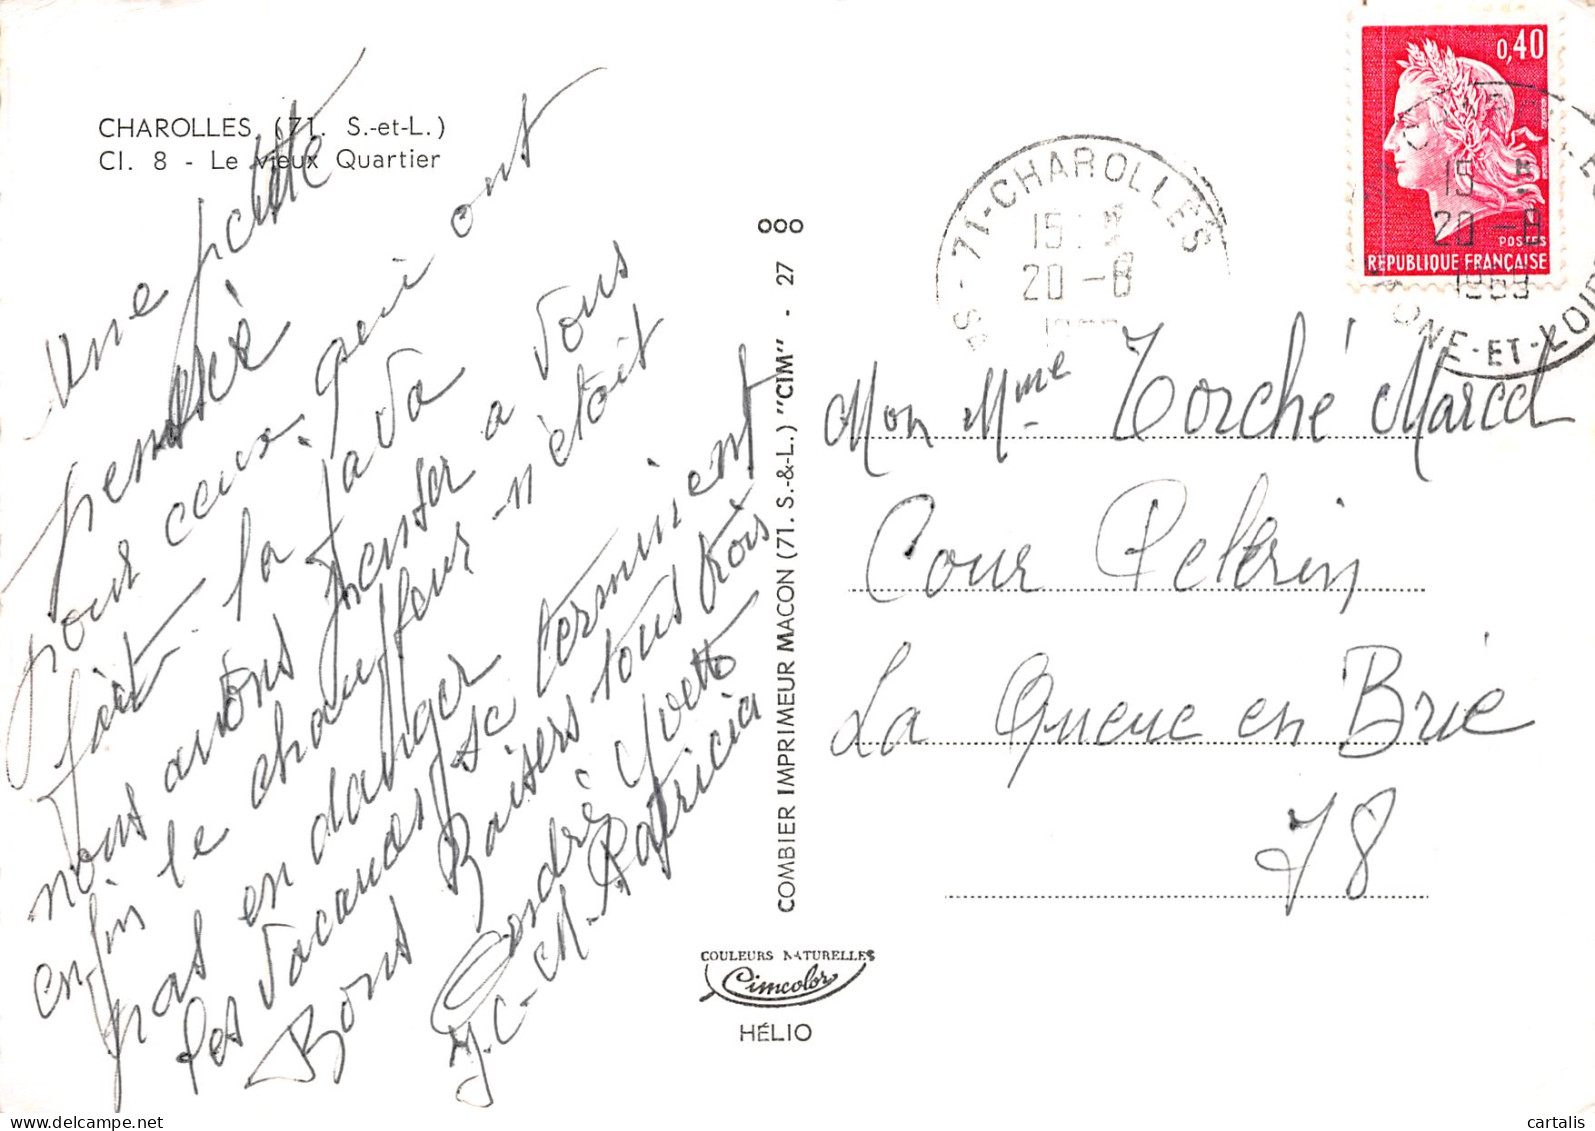 CHAROLLES (71. S.-et-L.)
Cl. 8 - Le Vieux Quartier
Une petite
pensée
pour ceux qui ont
fait la java
nous avons penser a vous
enfin le chauffeur n'était
pas en danger
les vacances se terminent
Bons Baisers tous trois
André Yvette
J.C-M. Patricia
COMBIER IMPRIMEUR MACON (71. S.-&-L.) "CIM" - 27 000
COULEURS NATURELLES
Cimcolor
HÉLIO
71-CHAROLLES
15
20 -8
0,40
POSTES
REPUBLIQUE FRANÇAISE
15
20 -8
1969
ONE-ET-LOIR
Mon Mme Torché Marcel
Cour Pelerin
La Queue en Brie
78
cartalis
www.delcampe.net